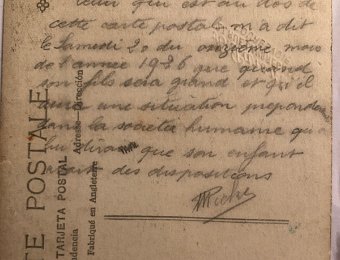 celui qui est au dos de
cette carte postale m'a dit
le Samedi 20 du onzième mois
de l'année 1926 que quand
son fils sera grand et qu'il
aura une situation
dans la société humaine qu'
lui dirait que son enfant
avait des dispositions
CARTE POSTALE
TARJETA POSTAL
Adresse—Dirección
Fabriqué en Angleterre